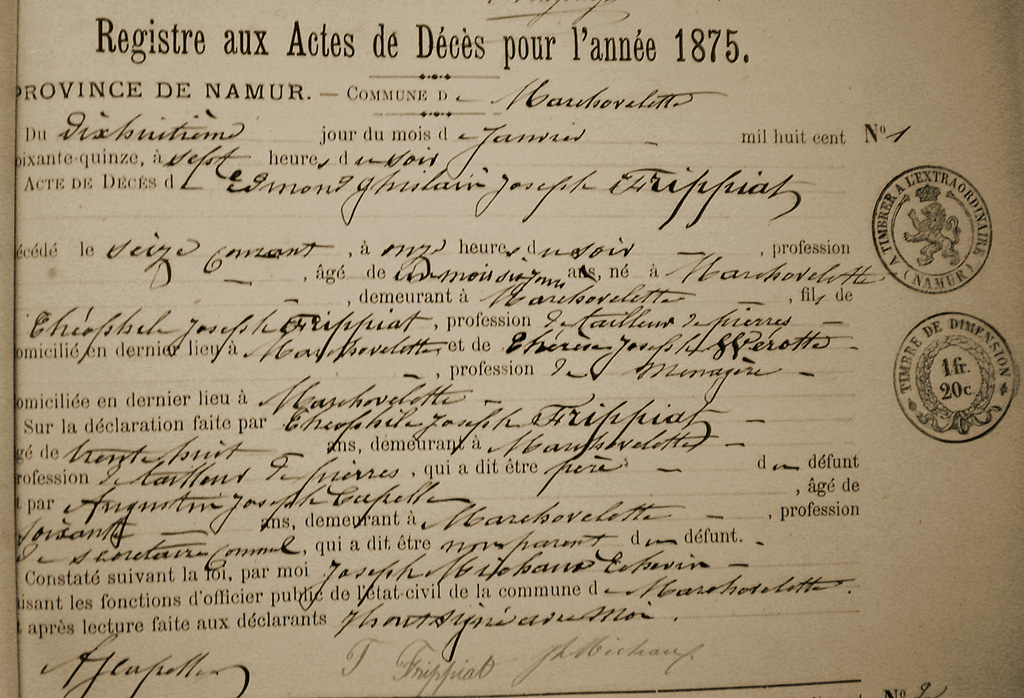 Registre aux Actes de Décès pour l'année 1875.
PROVINCE DE NAMUR. — COMMUNE De Marchovelette
Du dixhuitième jour du mois de Janvier – mil huit cent Nº 1
oixante-quinze, à sept heures du soir
ACTE DE DÉCÈS de Edmond Ghislain Joseph Frippiat
écédé le seize courant, à onze heures du soir –, profession
–, âgé de mois six jours ans, né à Marchovelette
–, demeurant à Marchovelette –, fils de
Théophile Joseph Frippiat, profession de tailleur de pierres –
omicilié en dernier lieu à Marchovelette et de Thérèse Joseph Perotte –
–, profession de Ménagère –
omiciliée en dernier lieu à Marchovelette –
Sur la déclaration faite par Théophile Joseph Frippiat
gé de trente huit ans, demeurant à Marchovelette –
rofession de tailleur de pierres, qui a dit être père – du défunt
t par Augustin Joseph Capelle, âgé de
soixante – ans, demeurant à Marchovelette –, profession
de secrétaire commal, qui a dit être non parent du défunt. –
Constaté suivant la loi, par moi Joseph Michaux Echevin –
isant les fonctions d'officier public de l'état-civil de la commune de Marchovelette.
t après lecture faite aux déclarants ils ont signé avec moi.
AJCapelle T Frippiat Jh Michaux
Nº 2
A TIMBRER A L'EXTRAORDINAIRE (NAMUR)
TIMBRE DE DIMENSION
1 fr.
20 c.